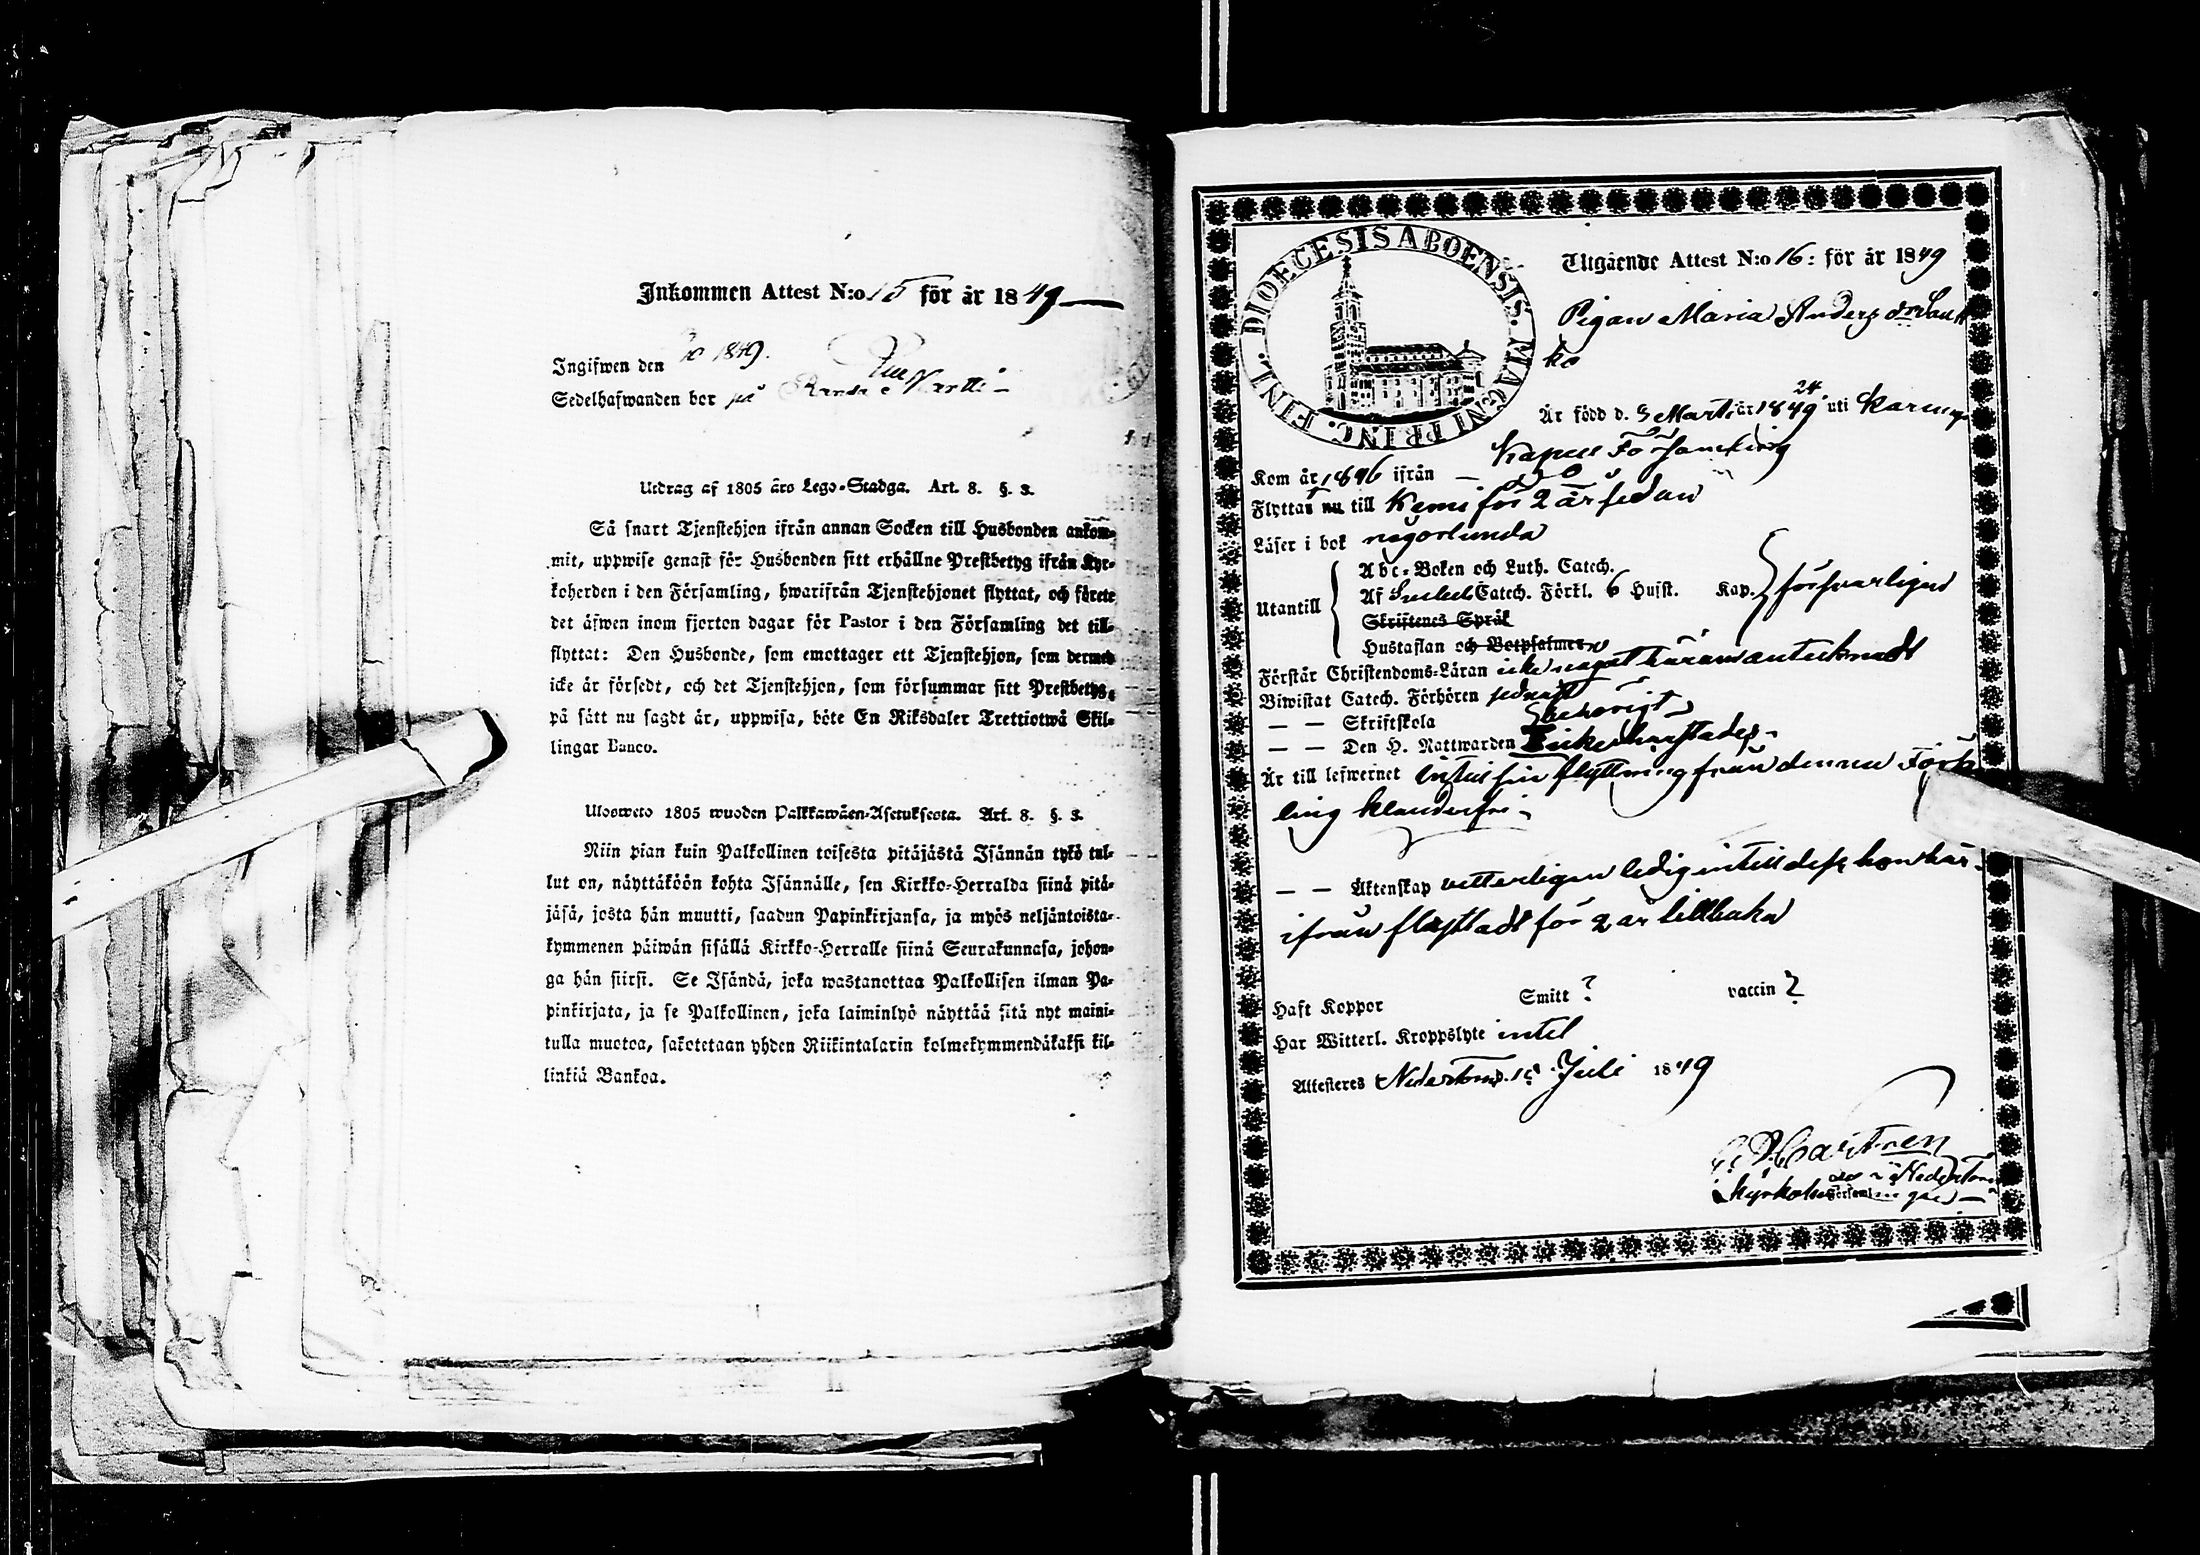 Inkommen Attest N:o 15 för år 1849
Ingifwen den 1849.
Sedelhafwanden bor på Martti
Utdrag af 1805 års Lego-Stadga. Art. 8. §. 3.
Så snart Tjenstehjon ifrån annan Socken till Husbonden ankom-
mit, uppwise genast för Husbonden sitt erhållne Prestbetyg ifrån Kyr-
koherden i den Församling, hwarifrån Tjenstehjonet flyttat, och förete
det äfwen inom fjorton dagar för Pastor i den Församling det till-
flyttat: Den Husbonde, som emottager ett Tjenstehjon, som dermed
icke är försedt, och det Tjenstehjon, som försummar sitt Prestbetyg,
på sätt nu sagdt är, uppwisa, böte En Riksdaler Trettiotwå Skil-
lingar Banco.
Ulosweto 1805 wuoden Palkkawäen-Asetuksesta. Art. 8. §. 3.
Niin pian kuin Palkollinen toisesta pitäjästä Isännän tykö tul-
lut on, näyttäköön kohta Isännälle, sen Kirkko-Herralda siinä pitä-
jäsä, josta hän muutti, saadun Papinkirjansa, ja myös neljäntoista-
kymmenen päiwän sisällä Kirkko-Herralle siinä Seurakunnasa, johon-
ga hän siirsi. Se Isändä, joka wastanottaa Palkollisen ilman Pa-
pinkirjata, ja se Palkollinen, joka laiminlyö näyttää sitä nyt maini-
tulla muotoa, sakotetaan yhden Riikintalarin kolmekymmendäkaksi kil-
linkiä Bankoa.
DIOECESIS ABOENSIS. MAGNI PRINC. FINL.
Utgående Attest N:o 16: för år 1849
Pigan Maria Anders dr
ko
Är född d. 5 Martii år 1849 24 uti Karung
Kom år 1846 ifrån Kapell Församling
Flyttat nu till Kemi för 2 år sedan
Läser i bok någorlunda
Utantill
Abc-Boken och Luth. Catech.
Af Catech. Förkl. 6 Hufst. Kap. försvarligen
Skriftenes Språk
Hustaflan och Botpsalmer
Förstår Christendoms-Läran icke något härom antecknadt
Biwistat Catech. Förhören
— — Skriftskola behörigt
— — Den H. Nattwarden
Är till lefwernet intill sin flyttning från denna Försam
ling klanderfri
— — Äktenskap vetterligen ledig intill dess hon här
ifrån flyttadt för 2 år tillbaka
Haft Koppor Smitt ? vaccin ?
Har Witterl. Kroppslyte intet
Attesteres Nedertorneå 15 Juli 1849
Castrén
Kyrkoherde i Nedertorneå